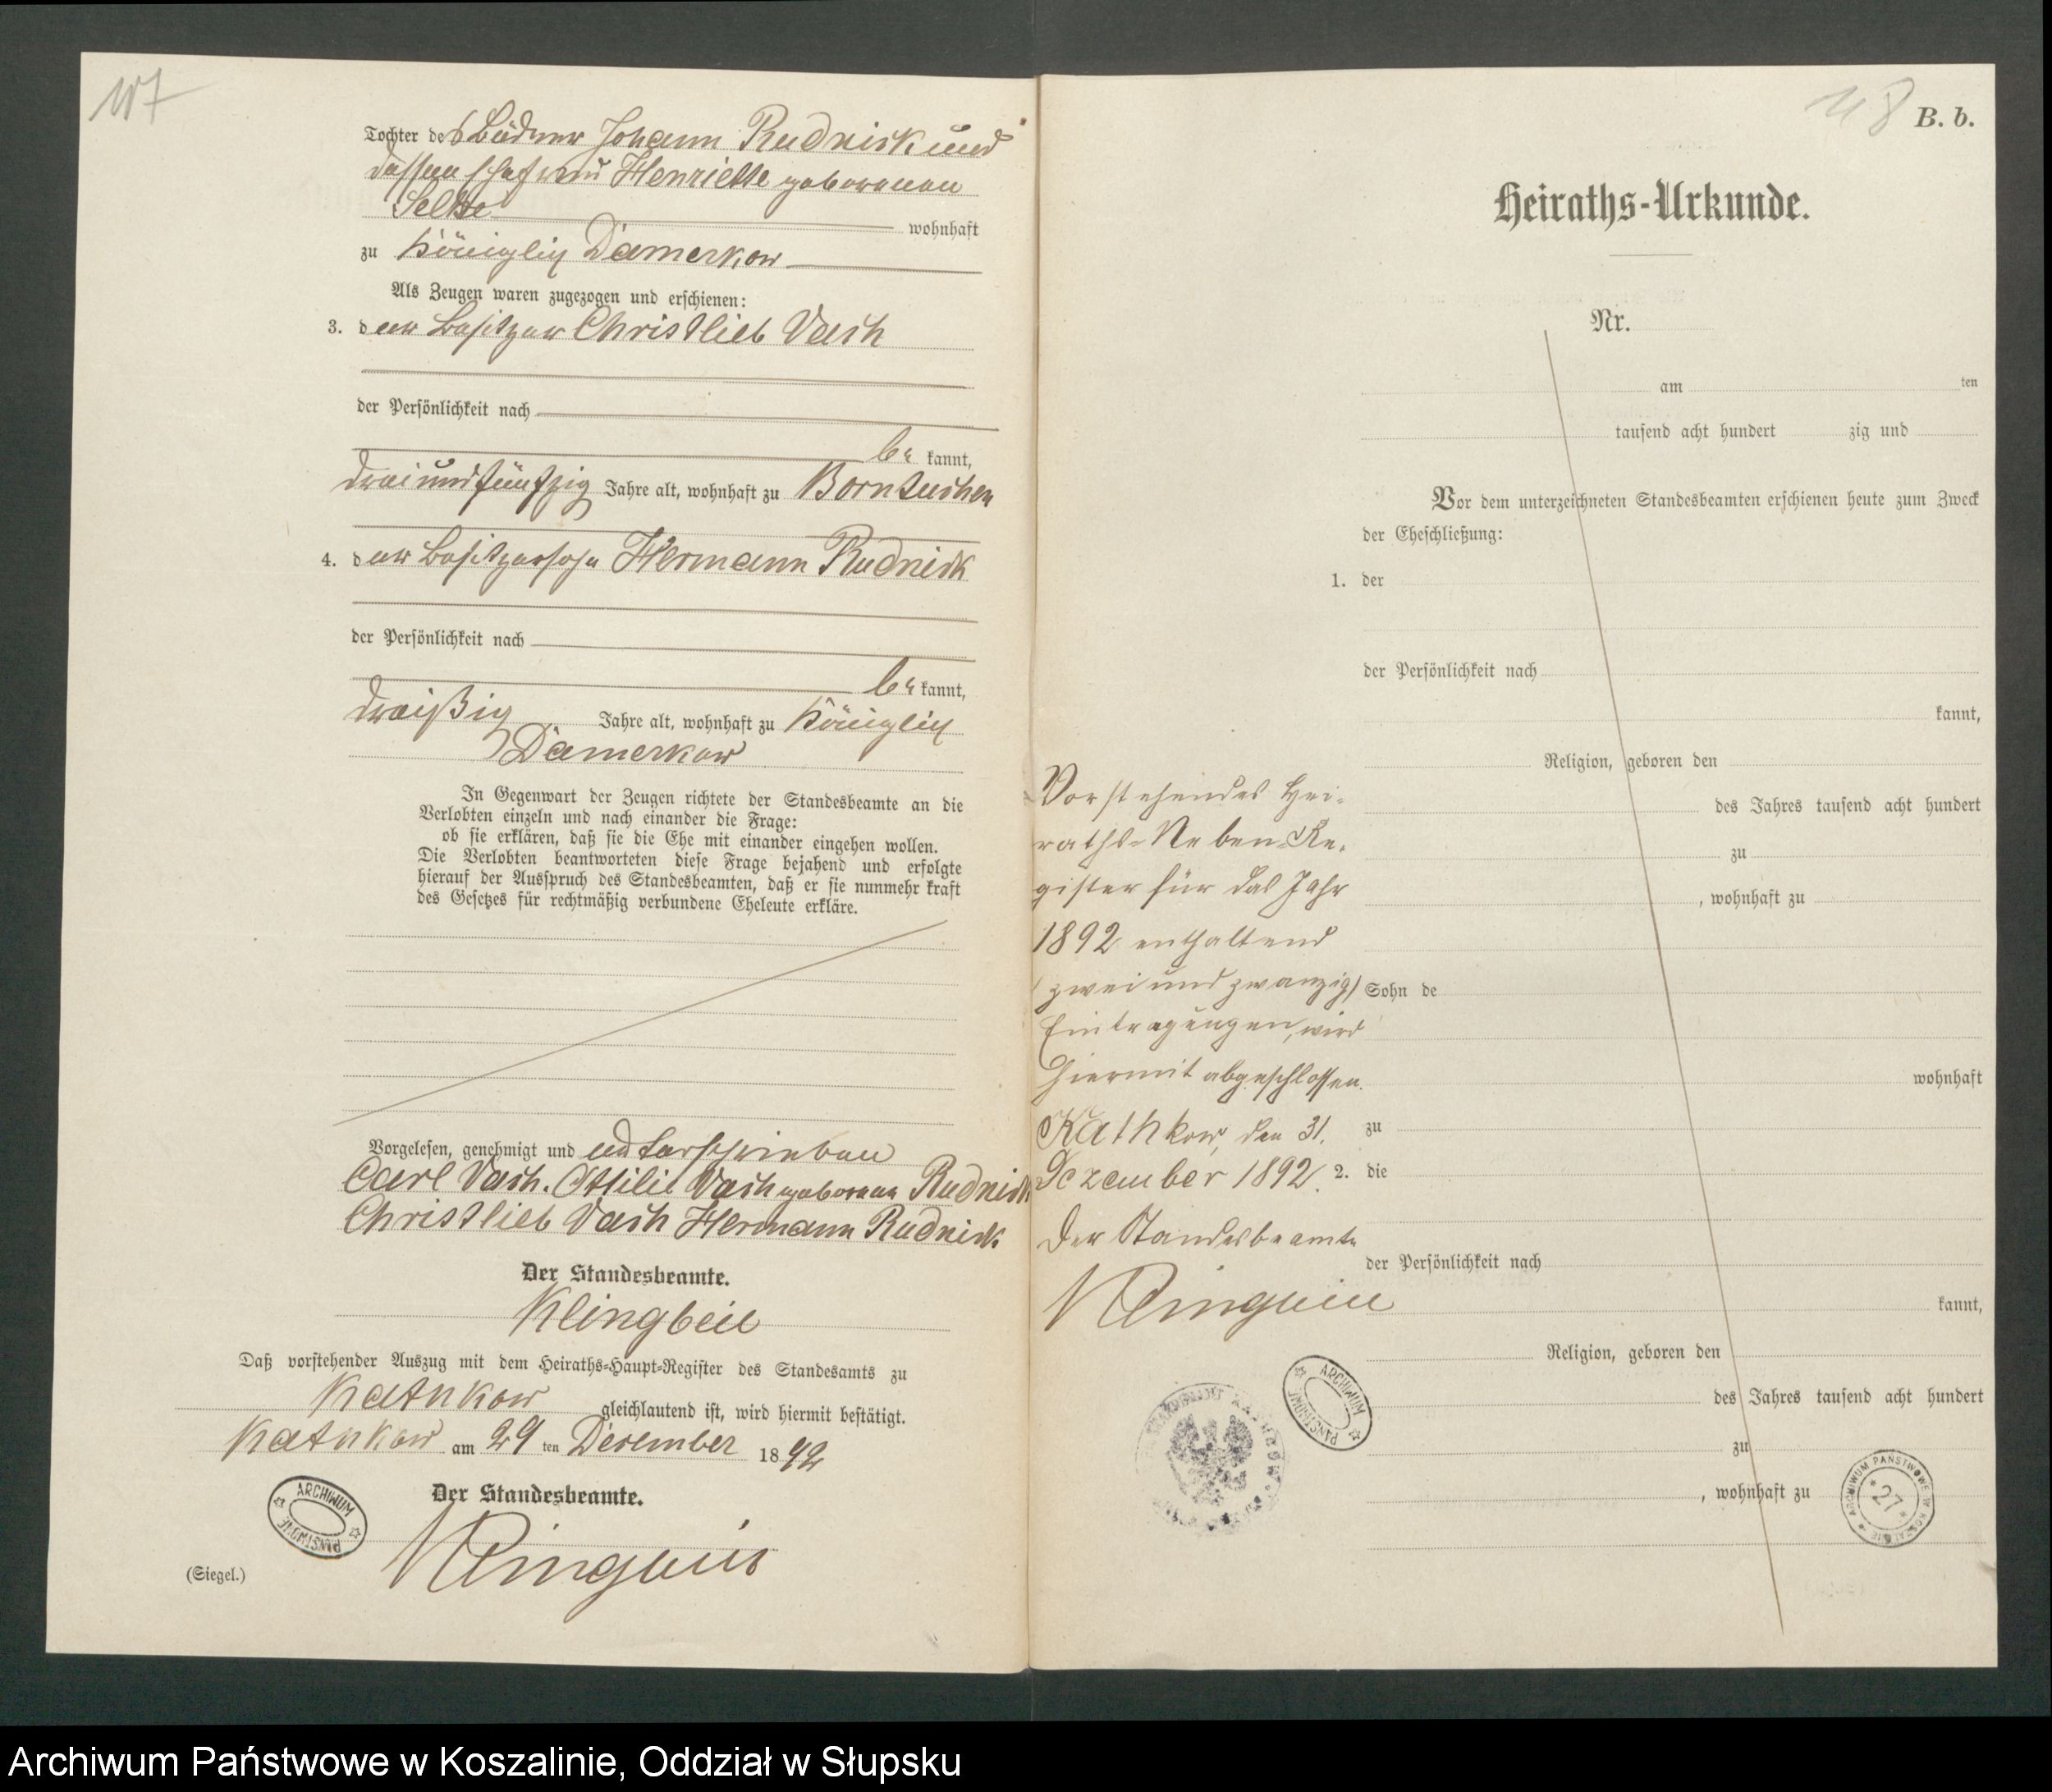 117
Tochter des Büdner Johann Rudnick und
dessen Ehefrau Henriette geborenen
Selke wohnhaft
zu Königlich Damerkow
Als Zeugen waren zugezogen und erschienen:
3. der Besitzer Christlieb Vach
der Persönlichkeit nach
be kannt,
dreiundfünfzig Jahre alt, wohnhaft zu Borntuchen
4. der Besitzersohn Hermann Rudnick
der Persönlichkeit nach
be kannt,
dreißig Jahre alt, wohnhaft zu Königlich
Damerkow
In Gegenwart der Zeugen richtete der Standesbeamte an die
Verlobten einzeln und nach einander die Frage:
ob sie erklären, daß sie die Ehe mit einander eingehen wollen.
Die Verlobten beantworteten diese Frage bejahend und erfolgte
hierauf der Ausspruch des Standesbeamten, daß er sie nunmehr kraft
des Gesetzes für rechtmäßig verbundene Eheleute erkläre.
Vorgelesen, genehmigt und unterschrieben
Carl Vach. Ottilie Vach geborene Rudnick
Christlieb Vach Hermann Rudnick
Der Standesbeamte.
Klingbeil
Daß vorstehender Auszug mit dem Heiraths-Haupt-Register des Standesamts zu
Kathkow gleichlautend ist, wird hiermit bestätigt.
Kathkow am 29 ten Dezember 1892
Der Standesbeamte.
Klingbeil
(Siegel.)
ARCHIWUM PAŃSTWOWE
118
B. b.
Heiraths-Urkunde.
Nr.
am ten
tausend acht hundert zig und
Vor dem unterzeichneten Standesbeamten erschienen heute zum Zweck
der Eheschließung:
1. der
der Persönlichkeit nach
kannt,
Religion, geboren den
des Jahres tausend acht hundert
zu
, wohnhaft zu
Sohn de
wohnhaft
zu
2. die
der Persönlichkeit nach
kannt,
Religion, geboren den
des Jahres tausend acht hundert
zu
, wohnhaft zu
Vorstehendes Hei-
raths-Neben-Re-
gister für das Jahr
1892 enthaltend
(zwei und zwanzig)
Eintragungen, wird
hiermit abgeschlossen.
Kathkow, den 31.
Dezember 1892.
Der Standesbeamte
Klingbeil
ARCHIWUM PAŃSTWOWE
ARCHIWUM PAŃSTWOWE W KOSZALINIE
27
Archiwum Państwowe w Koszalinie, Oddział w Słupsku